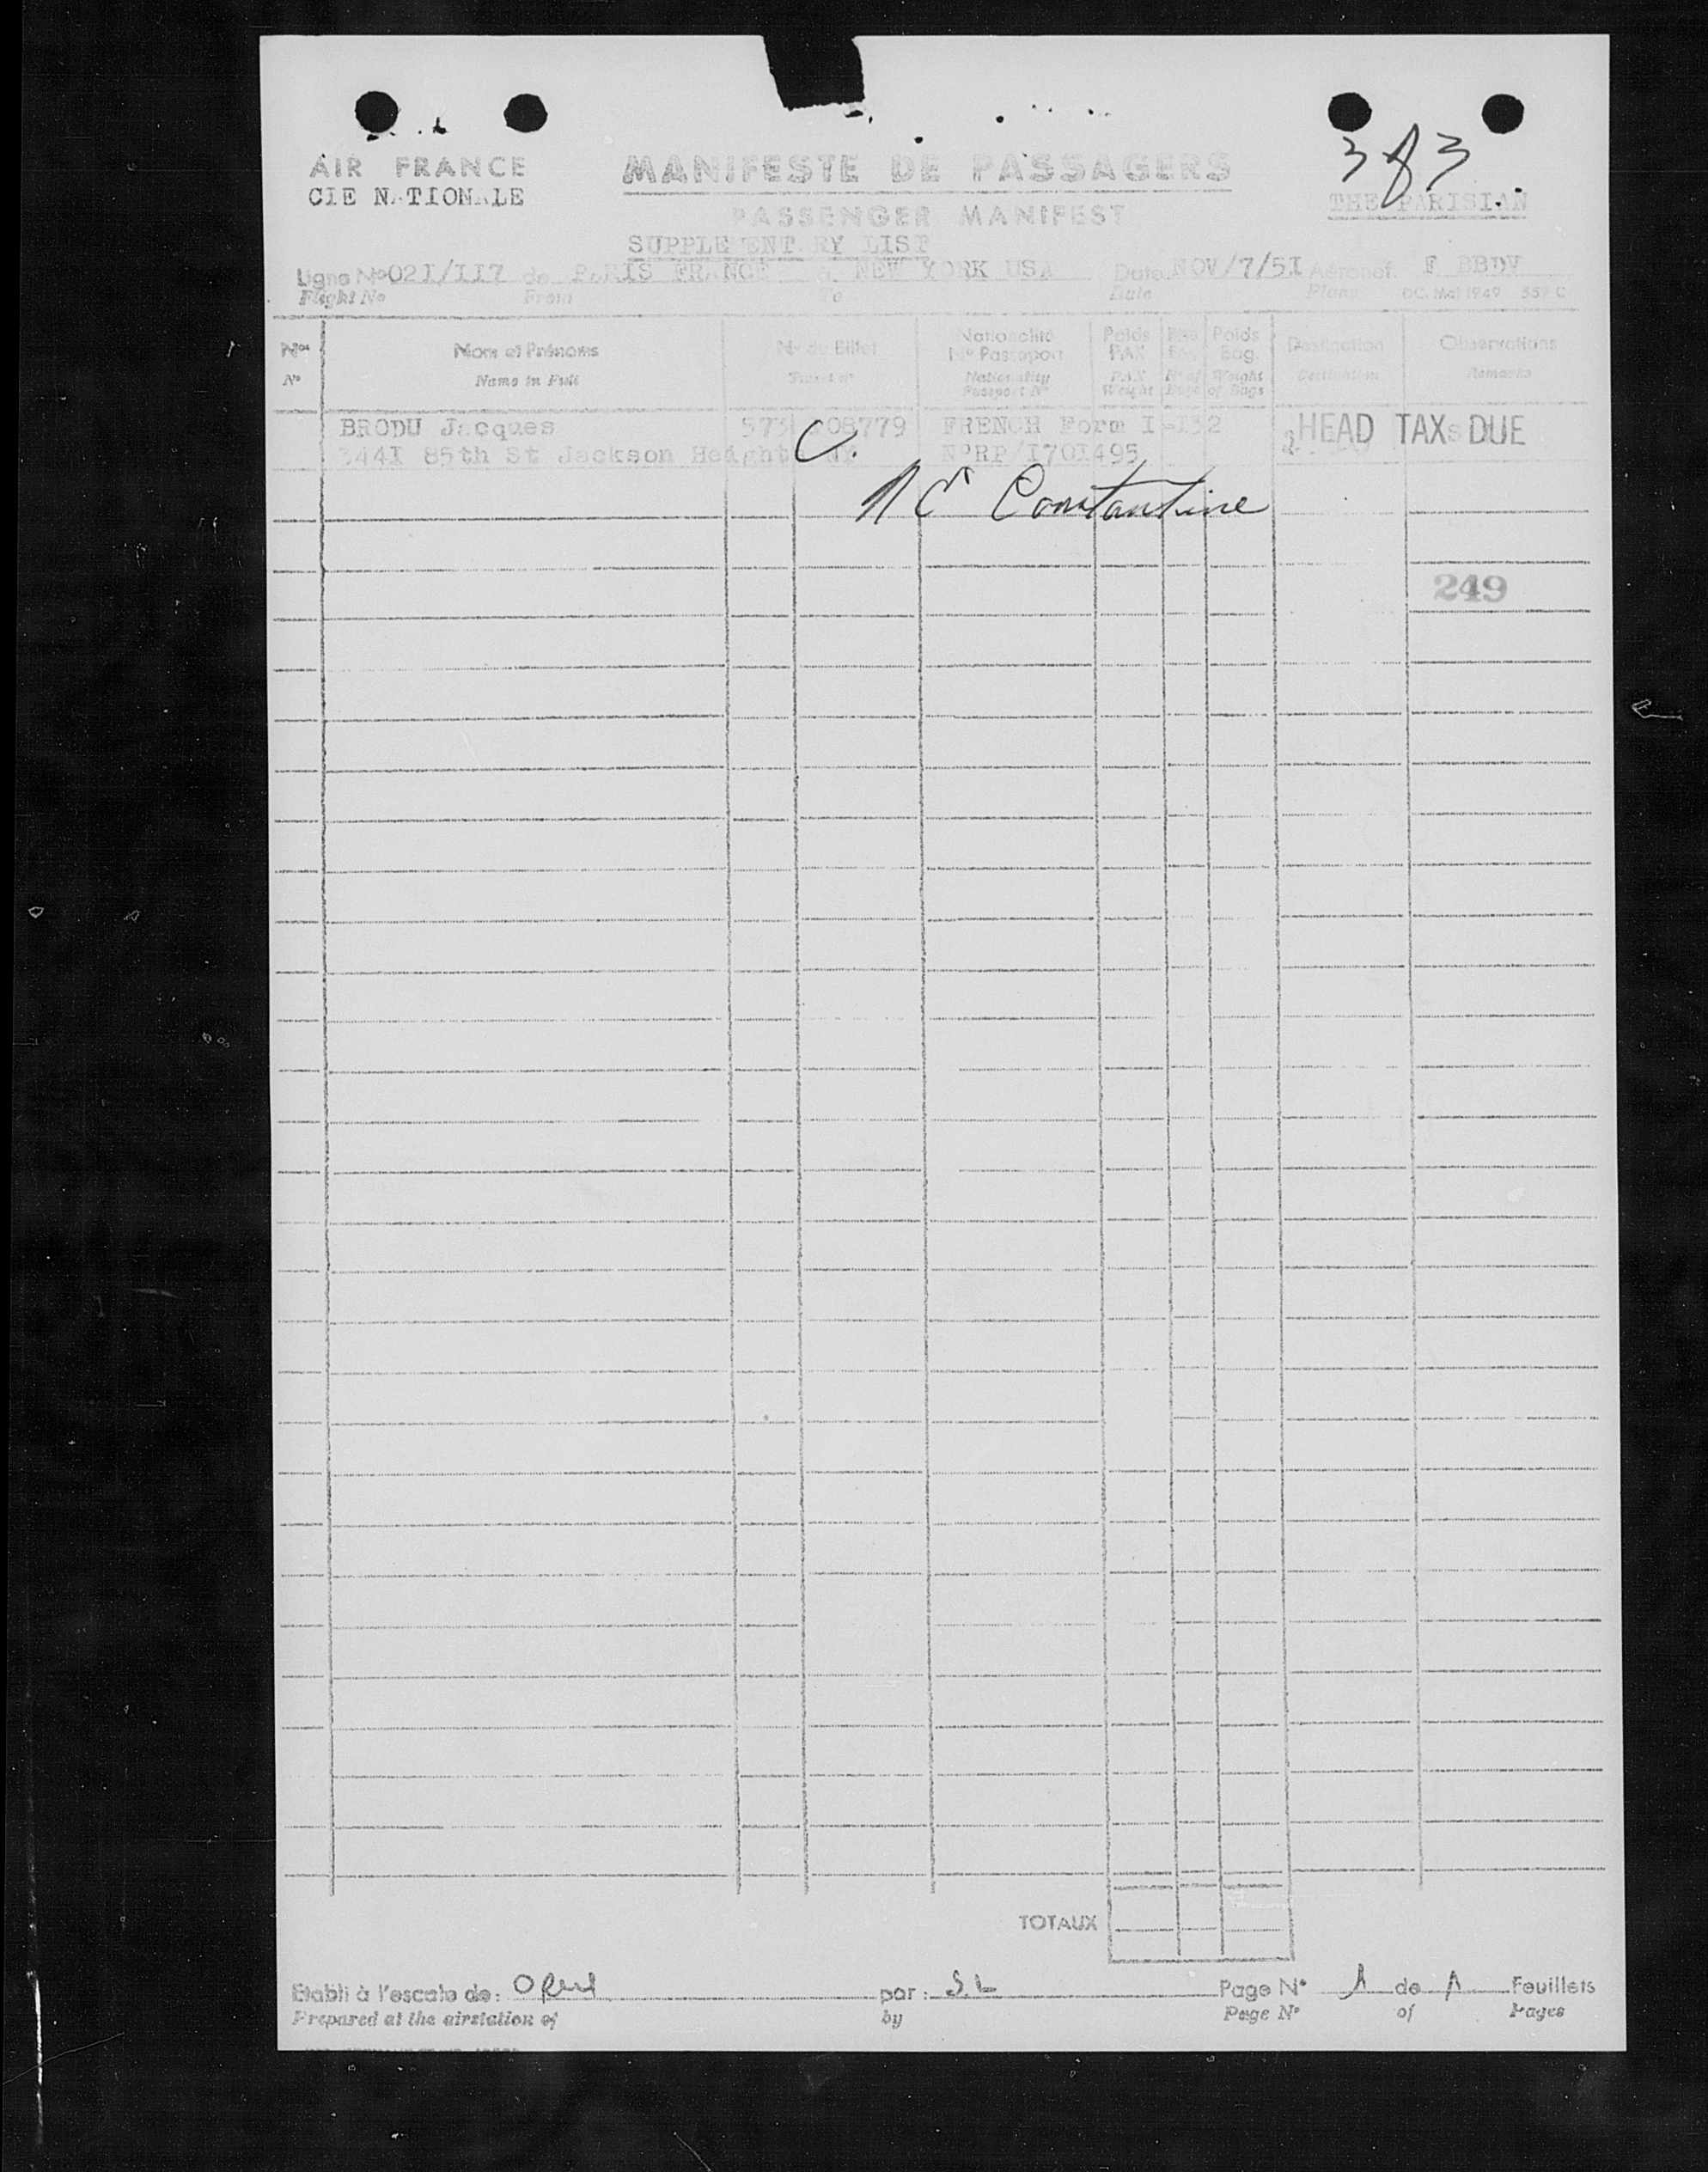 AIR FRANCE
CIE NATIONALE
MANIFESTE DE PASSAGERS
PASSENGER MANIFEST
SUPPLEMENTARY LIST
3 of 3
THE PARISIAN
Ligne Nº 021/117 de PARIS FRANCE à NEW YORK USA Date NOV/7/51 Aéronef. F BBDV
Flight No From To Date Plane
Nos Nom et Prénoms Nº du Billet Nationalité Nº Passeport Poids PAX Poids Bag. Destination Observations
Nº Name in Full Ticket nº Nationality Passport Nº PAX Weight Nº of Bags Weight of Bags Destination Remarks
BRODU Jacques 573 08779 FRENCH Form I-132 HEAD TAX DUE
3441 85th St Jackson Height NY NºRP/1701495
Constantine
249
TOTAUX
Etabli à l'escale de: par: S.L Page Nº 1 de 1 Feuillets
Prepared at the airstation of by Page Nº of Pages